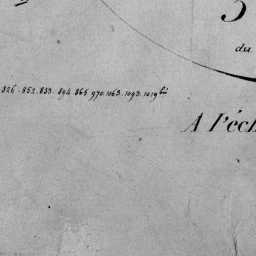 du
826. 852. 853. 894. 865. 970. 1063. 1093. 1019
A l'éch